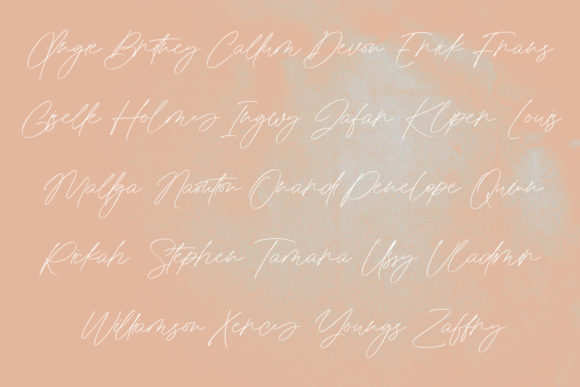 Angie Britney Callum Devon Erick Frans
Giselle Holmes Ingwy Jafar Klipen Louis
Mallga Naouton Onandi Penelope Quinn
Rickah Stephen Tamara Ussy Vladimir
Williamson Xerces Youngs Zaffry